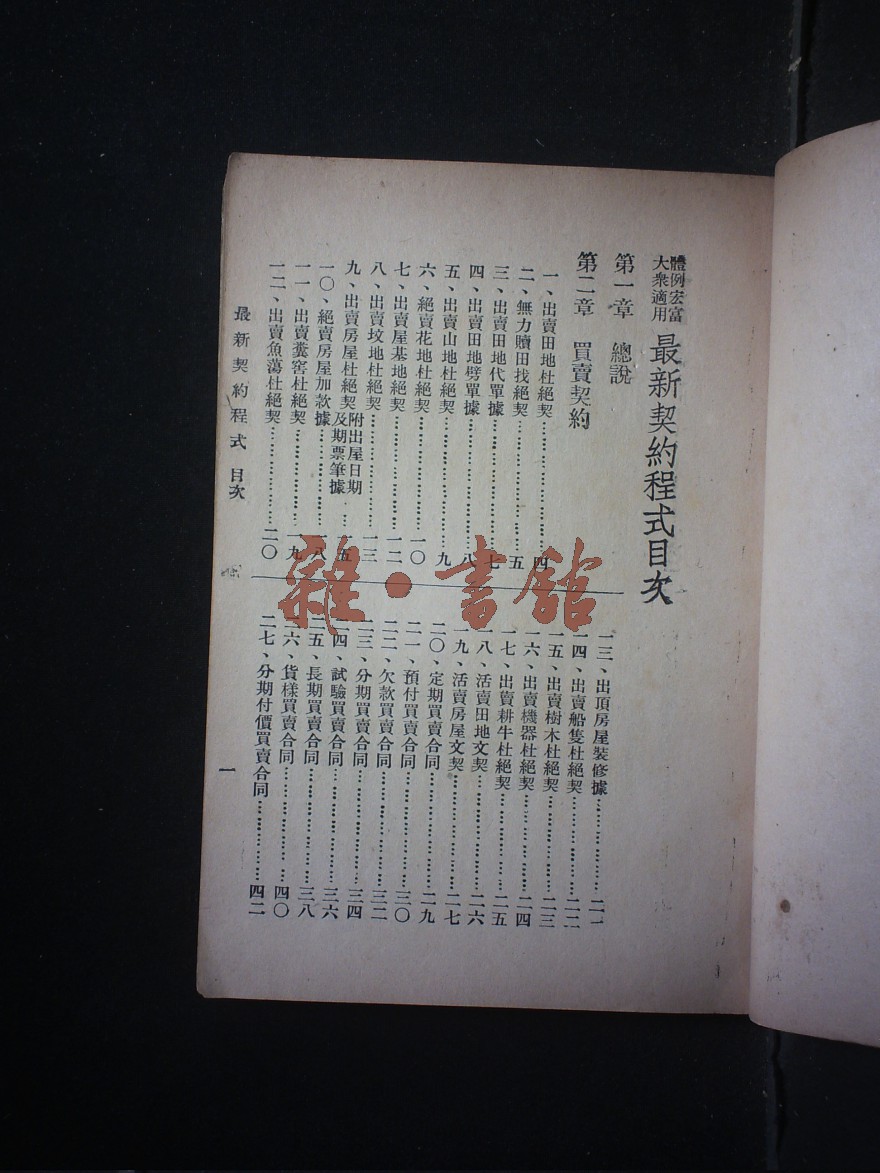 體例宏富
大衆適用
最新契約程式目次
第一章 總說
第二章 買賣契約
一、出賣田地杜絕契……………………四
二、無力贖田找絕契……………………五
三、出賣田地代單據……………………七
四、出賣田地劈單據……………………八
五、出賣山地杜絕契……………………九
六、絕賣花地杜絕契……………………一〇
七、出賣屋基地絕契……………………一二
八、出賣坟地杜絕契……………………一三
九、出賣房屋杜絕契附出屋日期及期票筆據…一五
一〇、絕賣房屋加款據…………………一八
一一、出賣糞窖杜絕契…………………一九
一二、出賣魚蕩杜絕契…………………二〇
一三、出頂房屋裝修據…………………二一
一四、出賣船隻杜絕契…………………二二
一五、出賣樹木杜絕契…………………二三
一六、出賣機器杜絕契…………………二四
一七、出賣耕牛杜絕契…………………二五
一八、活賣田地文契……………………二六
一九、活賣房屋文契……………………二七
二〇、定期買賣合同……………………二九
二一、預付買賣合同……………………三〇
二二、欠款買賣合同……………………三二
二三、分期買賣合同……………………三四
二四、試驗買賣合同……………………三六
二五、長期買賣合同……………………三八
二六、貨樣買賣合同……………………四〇
二七、分期付價買賣合同………………四二
最新契約程式 目次
一
雜·書館